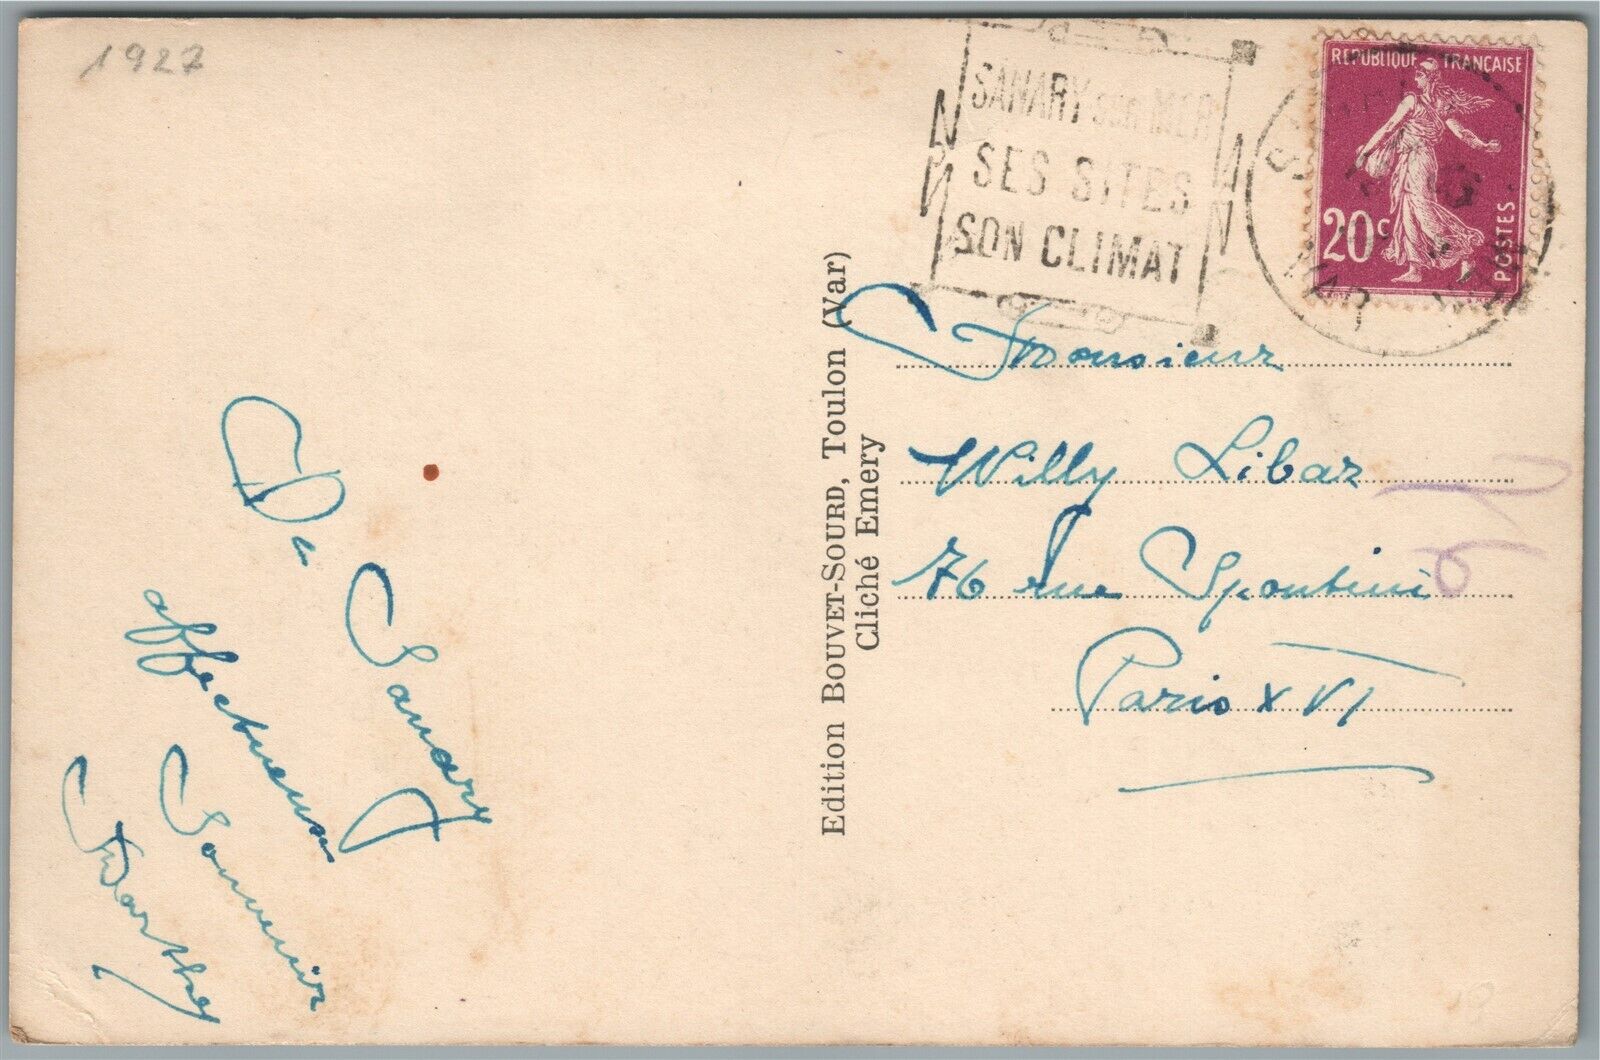 1927
SANARY sur MER
SES SITES
SON CLIMAT
REPUBLIQUE FRANÇAISE
20c
POSTES
VAR
Edition BOUVET-SOURD, Toulon (Var)
Cliché Emery
Monsieur
Willy Libar
76 rue Spontini
Paris XVI
De Sanary
affectueux
Souvenir
Marthe